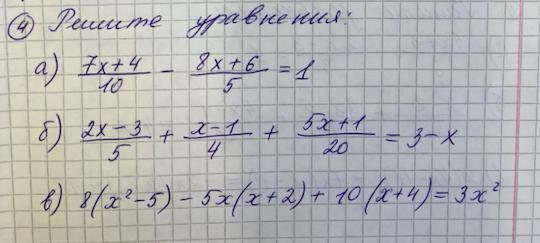 ④ Решите уравнения:
а) (7x+4)/10 - (8x+6)/5 = 1
б) (2x-3)/5 + (x-1)/4 + (5x+1)/20 = 3-x
в) 8(x²-5) - 5x(x+2) + 10(x+4) = 3x²